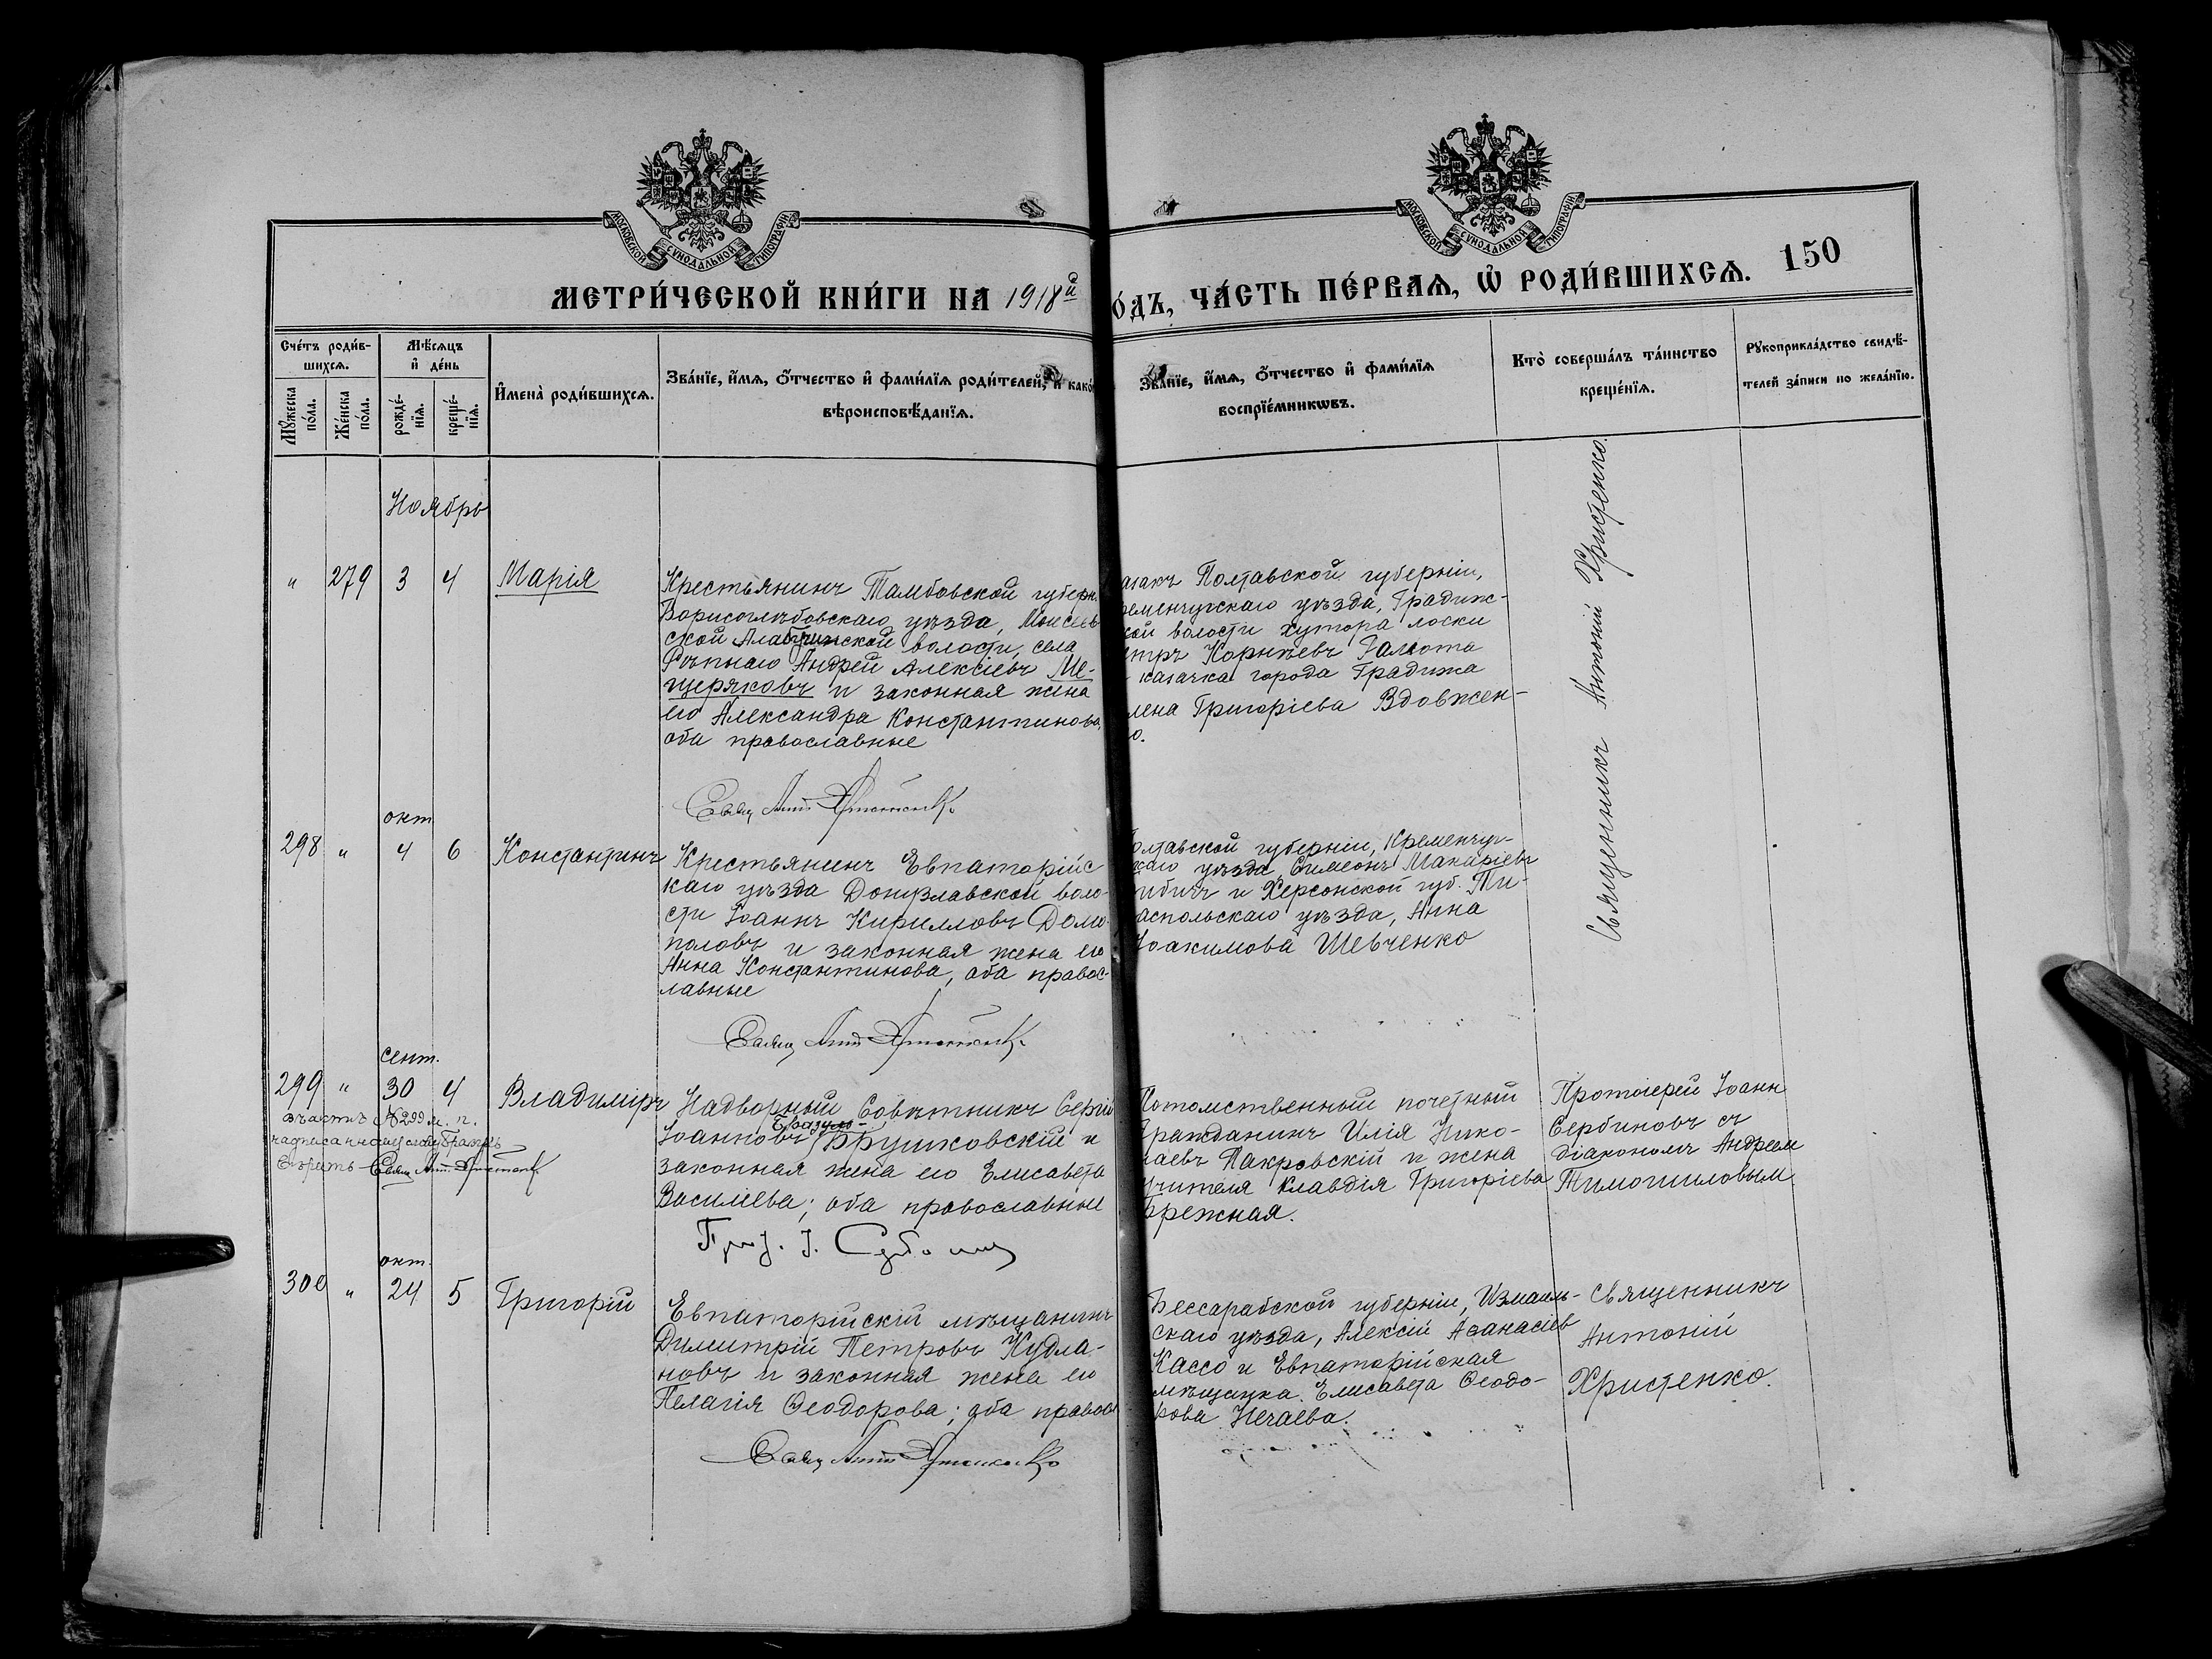 МОСКОВСКОЙ СѴНОДАЛЬНОЙ ТИПОГРАФІИ
МОСКОВСКОЙ СѴНОДАЛЬНОЙ ТИПОГРАФІИ
150
МЕТРИ́ЧЕСКОЙ КНИ́ГИ НА 1918й
О́ДЪ, ЧА́СТЬ ПЕ́РВАѦ, Ѽ РОДИ́ВШИХСѦ.
Сче́тъ роди́в-
шихсѧ.
Мꙋ́жеска по́ла.
Же́нска по́ла.
Мѣ́сѧцъ
и҆ де́нь
рожде́-
нїѧ.
креще́-
нїѧ.
И҆мена̀ роди́вшихсѧ.
Зва́нїе, и҆́мѧ, ѻ҆́тчество и҆ фами́лїѧ роди́телей, и҆ како́
вѣроисповѣ́данїѧ.
Зва́нїе, и҆́мѧ, ѻ҆́тчество и҆ фами́лїѧ
воспрїе́мникѡвъ.
Кто̀ соверша́лъ та́инство
креще́нїѧ.
Рꙋкоприкла́дство свидѣ́-
телей за́писи по жела́нїю.
Ноябрь
" 279 3 4 Марія
Крестьянинъ Тамбовской губерн
Борисоглѣбовскаго уѣзда, Моисеев
ской Алабушской волости, села
Рѣпнаго Андрей Алексіевъ Ме-
щеряковъ и законная жена
его Александра Константинова,
оба православные
Свящ Ант Христенко
азакъ Полтавской губерніи,
ременчугскаго уѣзда, Градиж-
кой волости хутора лоски
етръ Корнѣевъ
казачка города Градижа
лена Григоріева Вдовжен-
о.
Священникъ Антоній Христенко.
окт
298 " 4 6 Константинъ
Крестьянинъ Евпаторійс
каго уѣзда Донузлавской воло-
сти Іоаннъ Кирилловъ Домо-
половъ и законная жена его
Анна Константинова, оба правос-
лавные
Свящ Ант Христенко
олтавской губерніи, Кременчуг-
каго уѣзда, Симеонъ Макаріевъ
и Херсонской губ. Ти-
аспольскаго уѣзда, Анна
Іоакимова Шевченко
сент.
299 " 30 4 Владиміръ
въ № 299 м. п.
Свящ Ант. Христенко
Надворный Совѣтникъ Сергій
Іоанновъ Брушковскій и
законная жена его Елисавета
Василіева; оба православные
Прот. І.
Потомственный почетный
гражданинъ Илія Нико-
лаевъ Покровскій и жена
учителя Клавдія Григоріева
Бережная.
Протоіерей Іоанн
Сербиновъ съ
діакономъ Андреем
окт.
300 " 24 5 Григорій
Евпаторійскій мѣщанинъ
Димитрій Петровъ Кудла-
новъ и законная жена его
Пелагія Ѳеодорова; оба правосл
Свящ Ант Христенко
Бессарабской губерніи, Измаиль-
скаго уѣзда, Алексій Аѳанасіев
Кассо и Евпаторійская
мѣщанка Елисавета Ѳеодо-
рова Нечаева.
Священникъ
Антоній
Христенко.